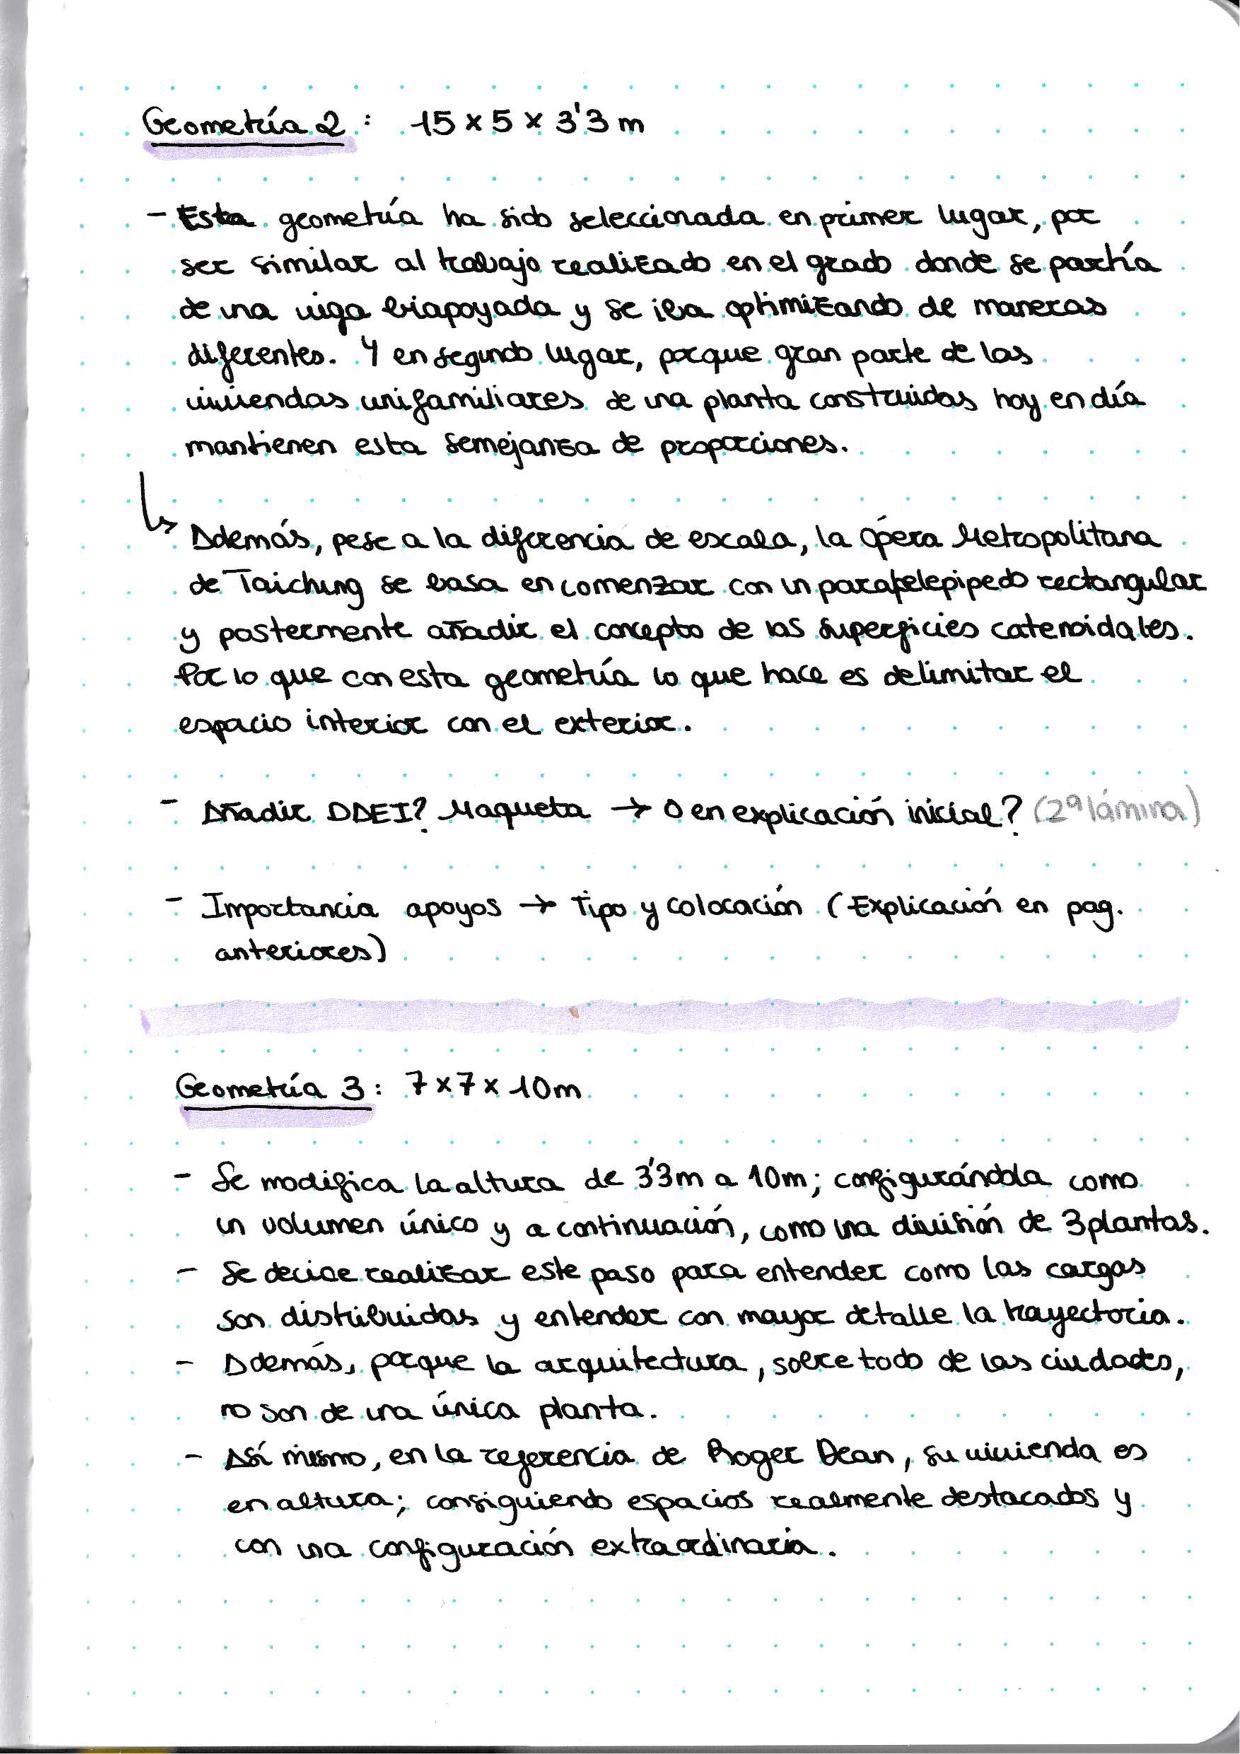 Geometría 2: 15 x 5 x 3'3 m
- Esta geometría ha sido seleccionada en primer lugar, por
ser similar al trabajo realizado en el grado donde se partía
de una viga biapoyada y se iba optimizando de maneras
diferentes. Y en segundo lugar, porque gran parte de las
viviendas unifamiliares de una planta construidas hoy en día
mantienen esta semejanza de proporciones.
↳ Además, pese a la diferencia de escala, la Ópera Metropolitana
de Taichung se basa en comenzar con un paralelepipedo rectangular
y postermente añadir el concepto de las superficies catenoidales.
Por lo que con esta geometría lo que hace es delimitar el
espacio interior con el exterior.
- Añadir DDEI? Maqueta → O en explicación inicial? (2ª lámina)
- Importancia apoyos → Tipo y colocación (Explicación en pag.
anteriores)
Geometría 3: 7 x 7 x 10m
- Se modifica la altura de 3'3m a 10m; configurándola como
un volumen único y a continuación, como una división de 3 plantas.
- Se decide realizar este paso para entender como las cargas
son distribuidas y entender con mayor detalle la trayectoria.
- Además, porque la arquitectura, sobre todo de las ciudades,
no son de una única planta.
- Así mismo, en la referencia de Roger Dean, su vivienda es
en altura; consiguiendo espacios realmente destacados y
con una configuración extraordinaria.